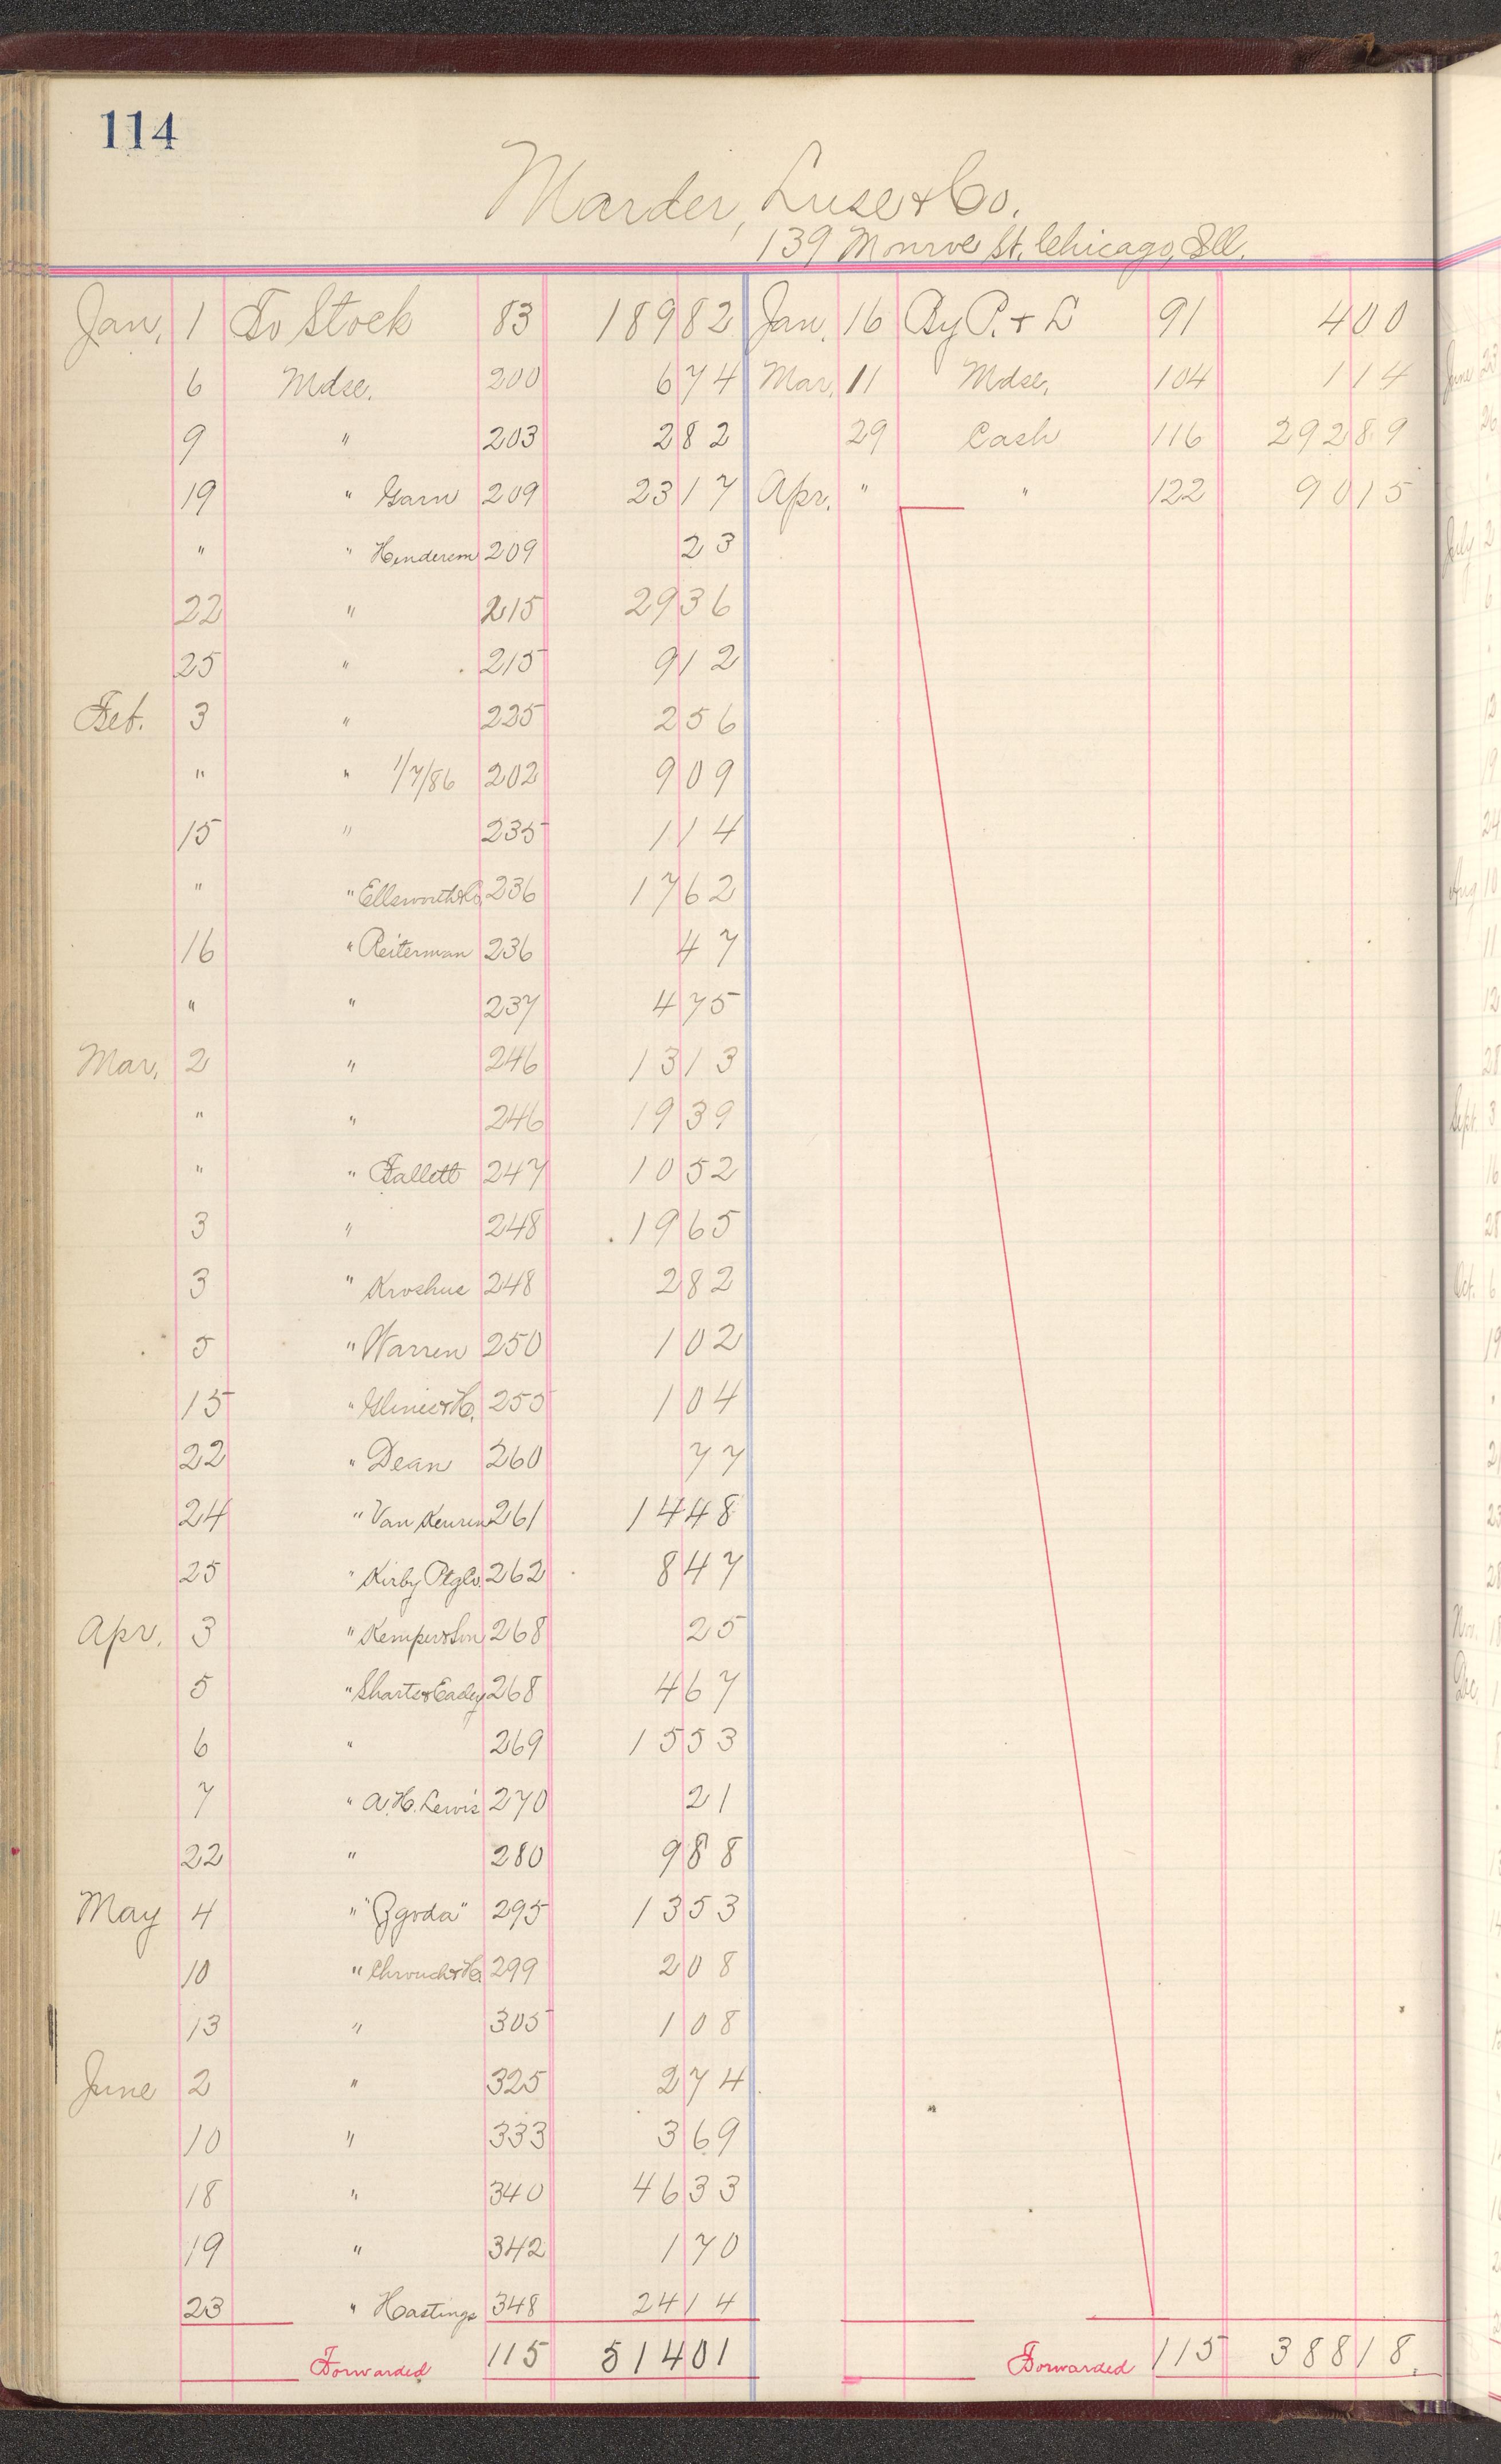 114
Marder, Luse & Co.
139 Monroe St. Chicago, Ill.
Jan. 1 To Stock 83 189 82 Jan. 16 By P. & L 91 4 00
6 Mdse. 200 6 74 Mar. 11 Mdse. 104 1 14
9 " 203 2 82 29 Cash 116 292 89
19 " Garn 209 23 17 Apr. " " 122 90 15
" " Henderson 209 23
22 " 215 29 36
25 " 215 9 12
Feb. 3 " 225 2 56
" " 1/7/86 202 9 09
15 " 235 1 14
" " Ellsworth & Co. 236 17 62
16 " Reiterman 236 47
" " 237 4 75
Mar. 2 " 246 13 13
" " 246 19 39
" " Fallett 247 10 52
3 " 248 19 65
3 " Kroshus 248 2 82
5 " Warren 250 1 02
15 " 255 1 04
22 " Dean 260 77
24 " Van Keuren 261 14 48
25 " Kirby Ptg Co. 262 8 47
Apr. 3 " Kemper & Son 268 25
5 " 268 4 67
6 " 269 15 53
7 " A. H. Lewis 270 21
22 " 280 9 88
May 4 " "Zgoda" 295 13 53
10 " 299 2 08
13 " 305 1 08
June 2 " 325 2 74
10 " 333 3 69
18 " 340 46 33
19 " 342 1 70
23 " Hastings 348 24 14
Forwarded 115 514 01 Forwarded 115 388 18